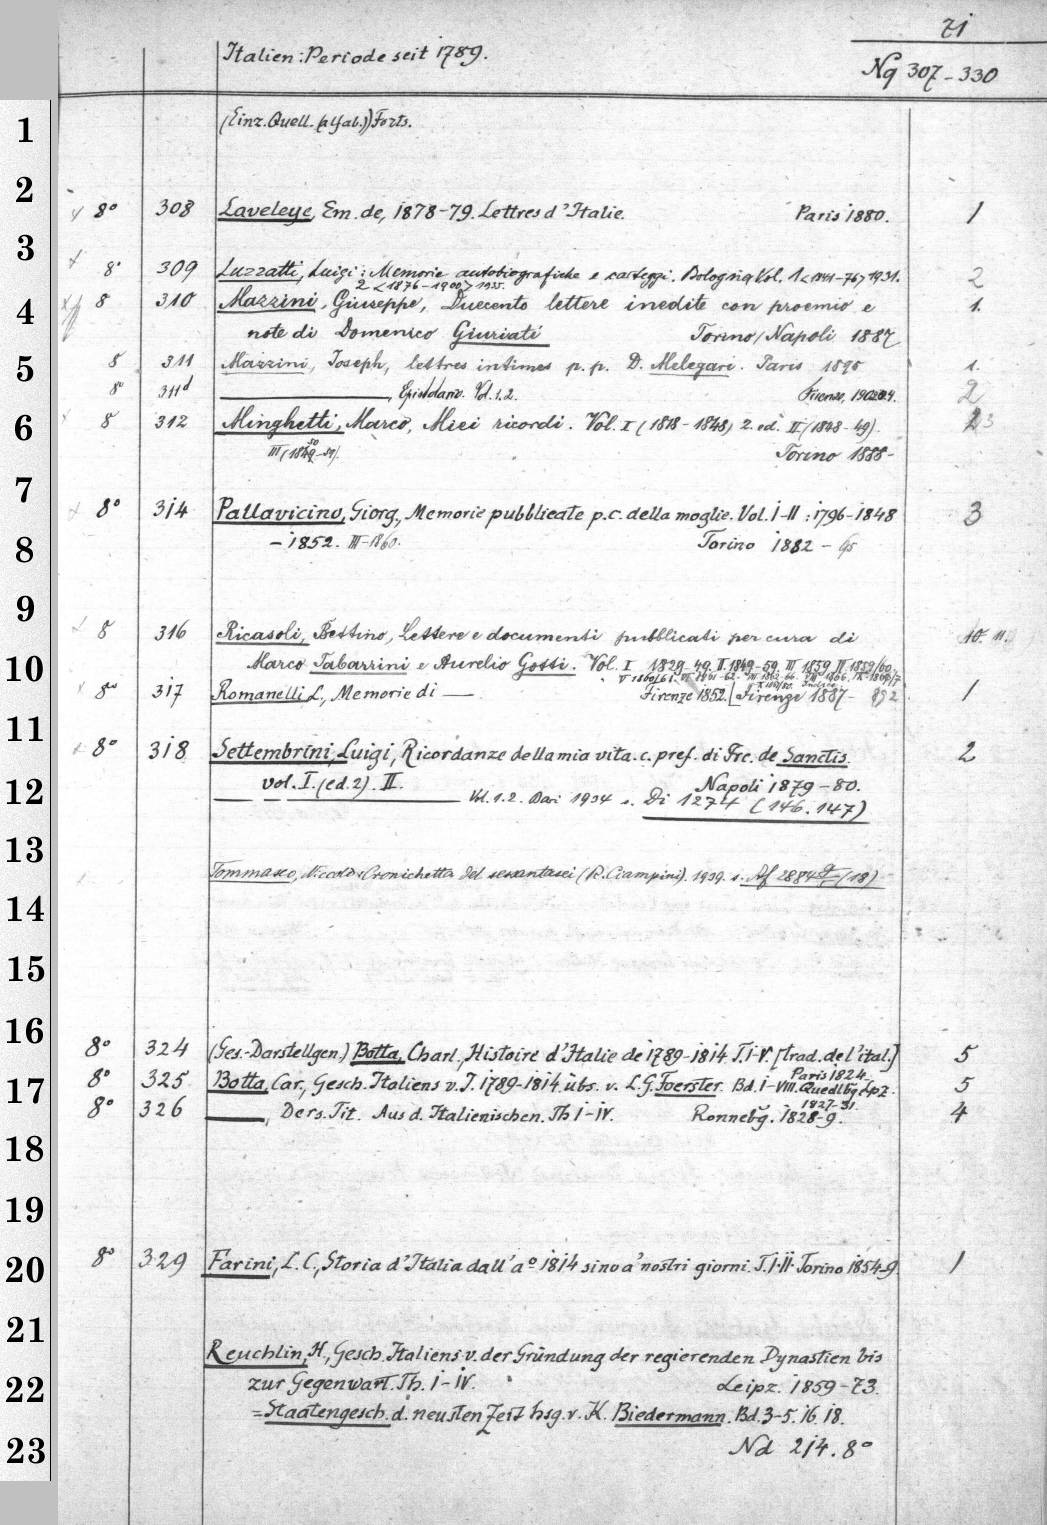 71
Italien: Periode seit 1789.
Nq 307-330
1
(Einz. Quell. (alfab.)) Forts.
2
8° 308 Laveleye, Em. de, 1878-79. Lettres d'Italie. Paris 1880. 1
3
8° 309 Luzzatti, Luigi: Memorie autobiografiche e carteggi. Bologna Vol. 1 <1841-76> 1931. 2
2 <1876-1900> 1935.
4
8 310 Mazzini, Giuseppe, Duecento lettere inedite con proemio e 1.
note di Domenico Giuriati Torino/Napoli 1887
5
8 311 Mazzini, Joseph, lettres intimes p. p. D. Melegari. Paris 1895 1.
8° 311d ———, Epistolario. Vol. 1.2. Firenze, 2
6
8 312 Minghetti, Marco, Miei ricordi. Vol. I (1818-1848) 2. ed. II (1848-49). 3
III (1850-59). Torino 1888-
7
8° 314 Pallavicino, Giorg., Memorie pubblicate p. c. della moglie. Vol. I-II: 1796-1848 3
8
-1852. III-1860. Torino 1882 - 95
9
8 316 Ricasoli, Bettino, Lettere e documenti pubblicati per cura di 10. 11.
10
Marco Tabarrini e Aurelio Gotti. Vol. I 1829-49. II. 1849-59. III 1859. IV 1859/60.
8° 317 Romanelli L., Memorie di — Firenze 1852. [Firenze 1887- 1
11
8° 318 Settembrini, Luigi, Ricordanze della mia vita. c. pref. di Frc. de Sanctis. 2
vol. I. (ed. 2). II. Napoli 1879-80.
12
— — ——— Vol. 1.2. Bari 1934 s. Di 1274 (146. 147)
13
Tommaseo, Niccolò: Cronichetta del sessantasei (R. Ciampini). 1939. s. Af 2884 (18)
14
15
16
8° 324 (Ges.-Darstellgen.) Botta, Charl., Histoire d'Italie de 1789-1814. T. I-V. [trad. de l'ital.] 5
Paris 1824.
17
8° 325 Botta, Car., Gesch. Italiens v. J. 1789-1814, übs. v. L. G. Foerster. Bd. I-VIII. Quedlbg, Lpz. 5
1827-31.
8° 326 ———, Ders. Tit. Aus d. Italienischen. Th I-IV. Ronnebg. 1828-9. 4
18
19
20
8° 329 Farini, L. C., Storia d'Italia dall' a° 1814 sino a' nostri giorni. T. I-II. Torino 1854-9. 1
21
Reuchlin, H., Gesch. Italiens v. der Gründung der regierenden Dynastien bis
22
zur Gegenwart. Th. I-IV. Leipz. 1859-73.
=Staatengesch. d. neusten Zeit hsg. v. K. Biedermann. Bd. 3-5. 16. 18.
23
Nd 214. 8°